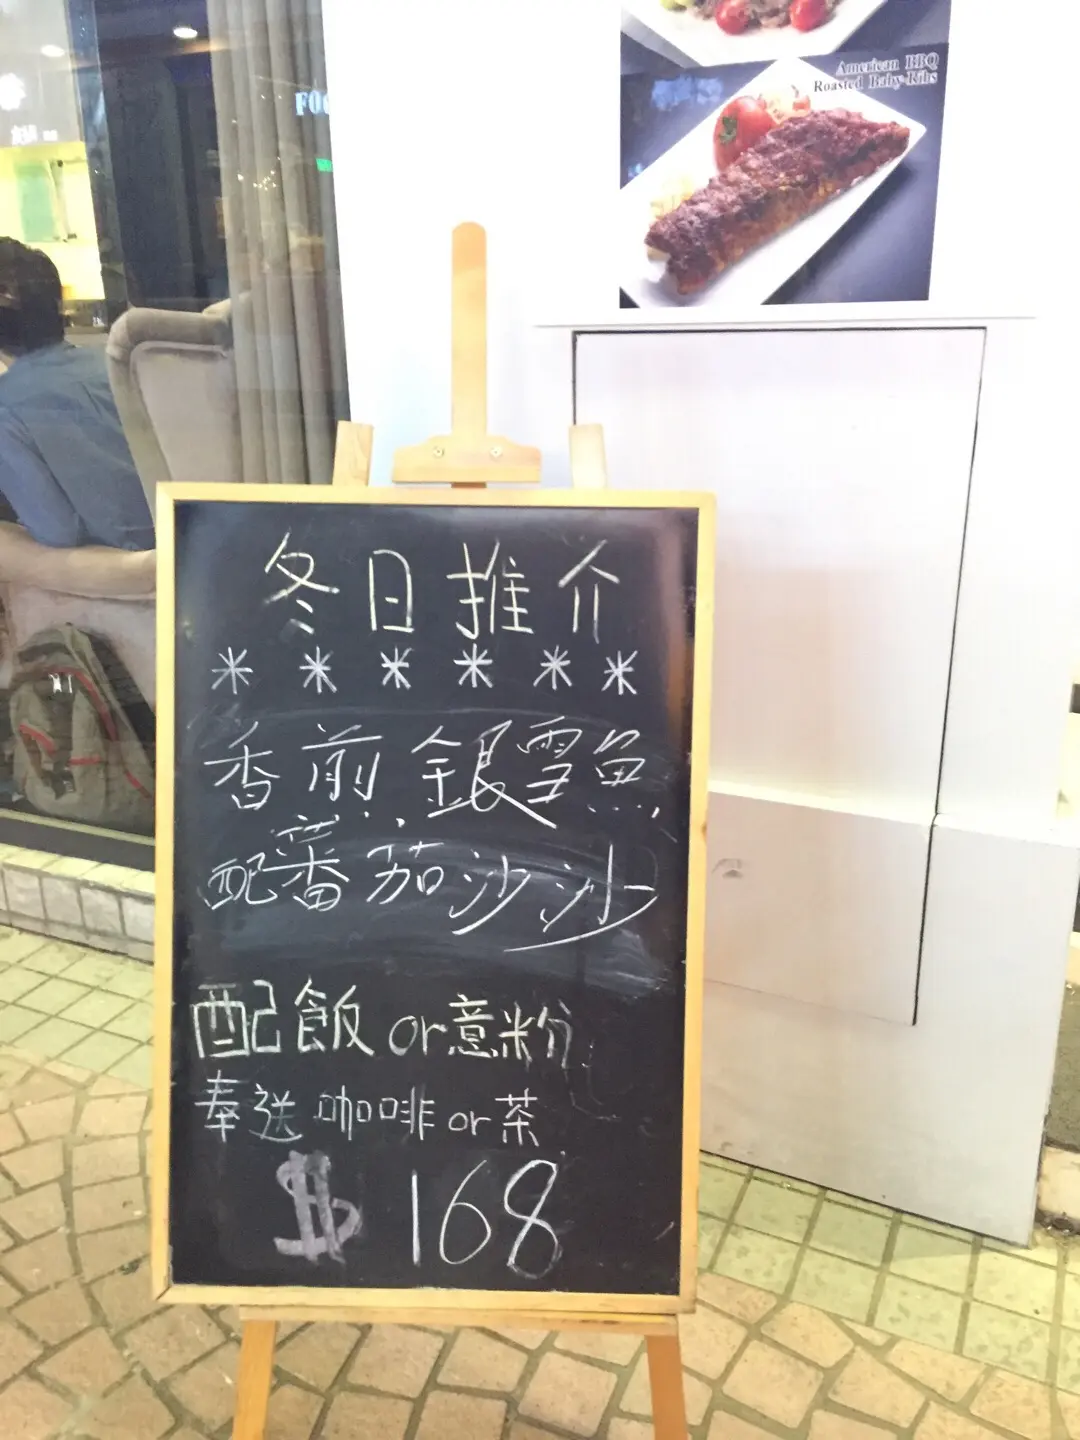 American BBQ
Roasted Baby Ribs
冬日推介
* * * * * *
香煎銀雪魚
配蕃茄沙沙
配飯 or 意粉
奉送咖啡 or 茶
$ 168